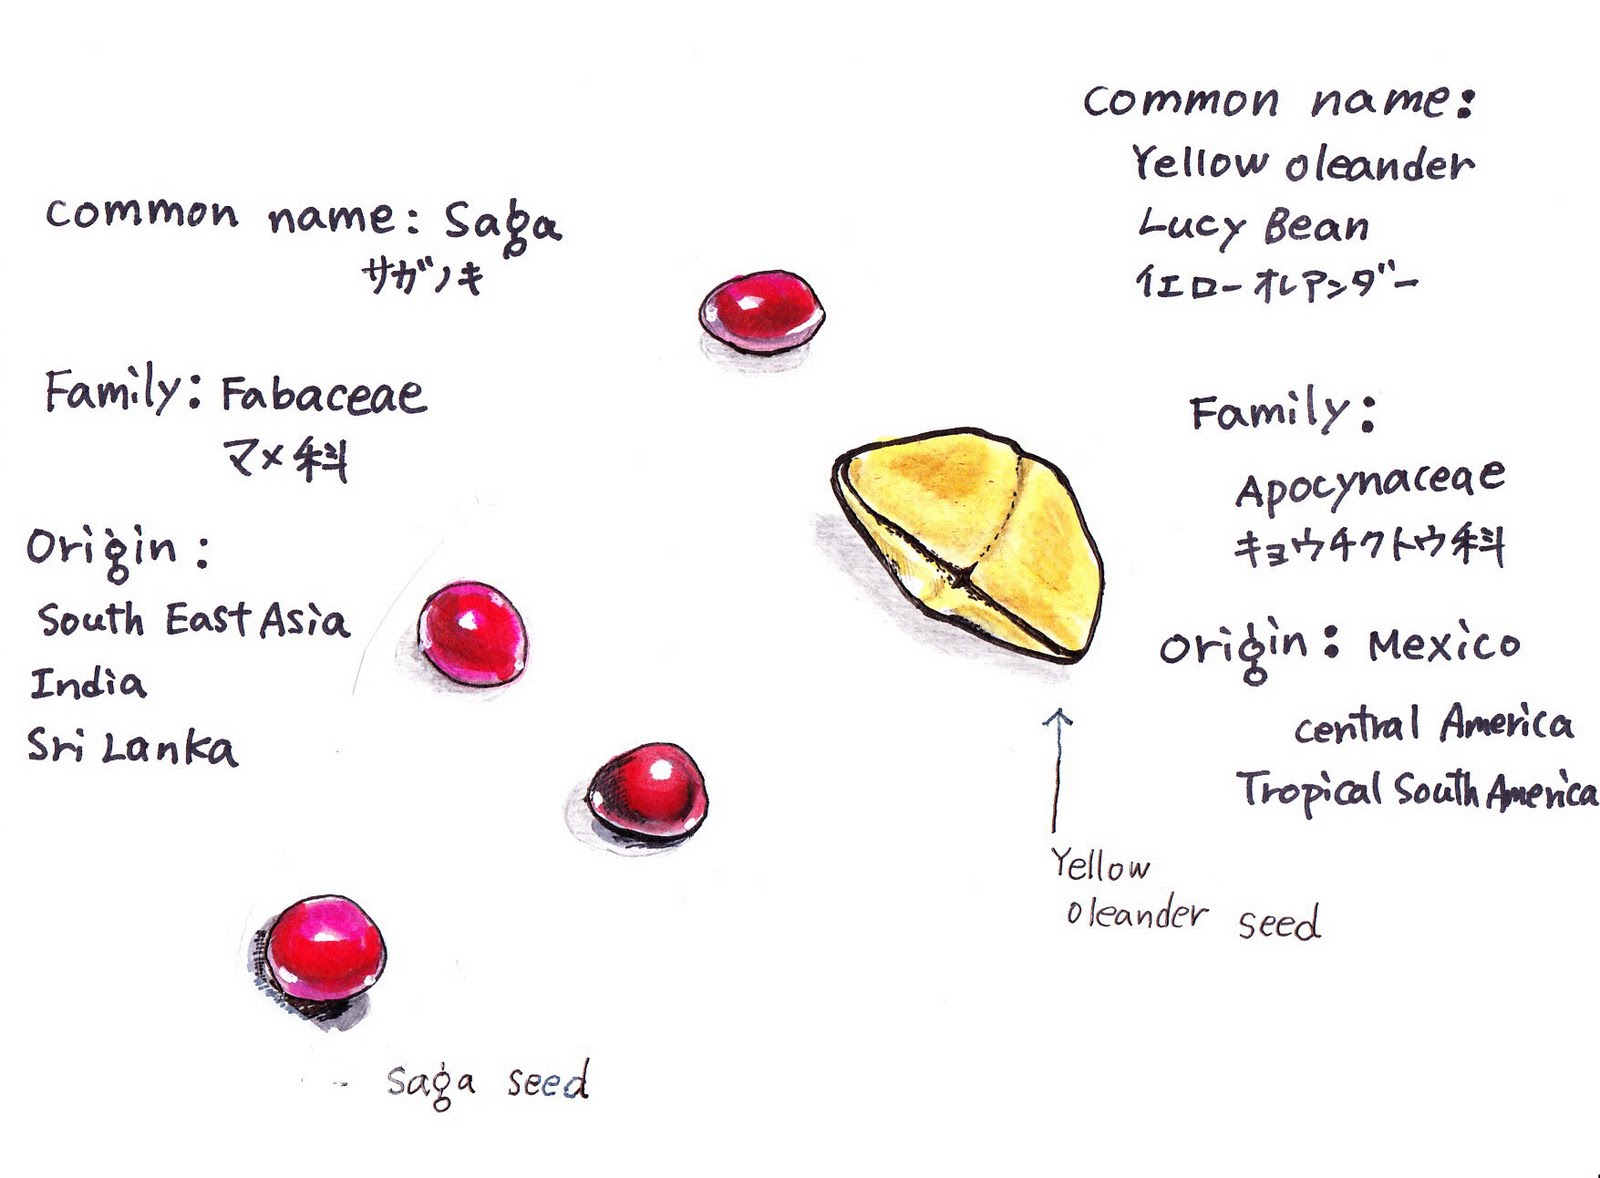 Common name: Saga
サガノキ
Family: Fabaceae
マメ科
Origin:
South East Asia
India
Sri Lanka
Saga seed
Common name:
Yellow oleander
Lucy Bean
イエローオレアンダー
Family:
Apocynaceae
キョウチクトウ科
Origin: Mexico
central America
Tropical South America
Yellow
oleander seed